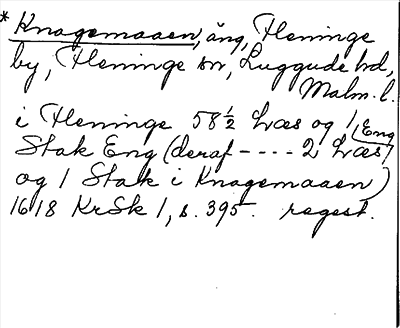 * Knagemaaen, äng, Fleninge
by, Fleninge sn, Luggude hd,
Malm. l.
i Fleninge 58½ Læs og 1 Eng
Stak Eng (deraf ---- 2 Læs
og 1 Stak i Knagemaaen)
1618 KrSk 1, s. 395. regest.